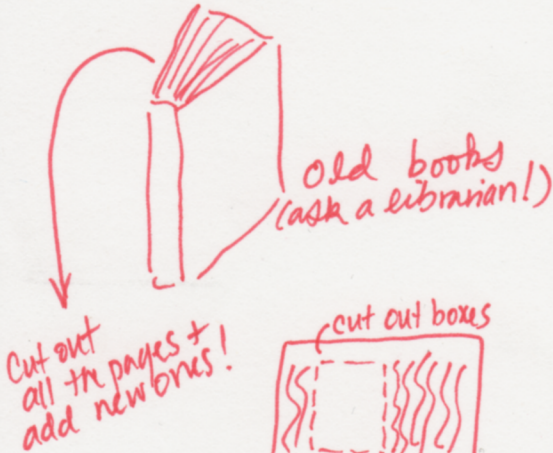 Old books
(ask a librarian!)
Cut out
all the pages +
add new ones!
cut out boxes